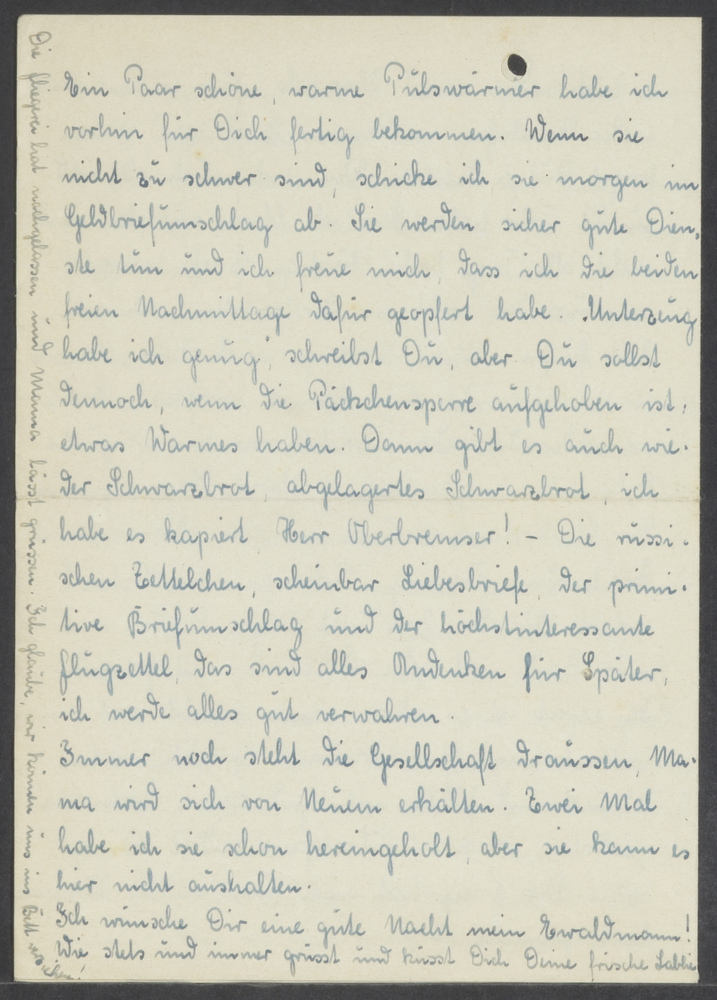 Ein Paar schöne, warme Pulswärmer habe ich
vorhin für Dich fertig bekommen. Wenn sie
nicht zu schwer sind, schicke ich sie morgen im
Geldbriefumschlag ab. Sie werden sicher gute Dien-
ste tun und ich freue mich, dass ich die beiden
freien Nachmittage dafür geopfert habe. „Unterzeug
habe ich genug", schreibst Du, aber Du sollst
dennoch, wenn die Päckchensperre aufgehoben ist,
etwas Warmes haben. Dann gibt es auch wie-
der Schwarzbrot, abgelagertes Schwarzbrot, ich
habe es kapiert Herr Oberbremser! - Die russi-
schen Zettelchen, scheinbar Liebesbriefe, der primi-
tive Briefumschlag und der höchstinteressante
Flugzettel, das sind alles Andenken für Später,
ich werde alles gut verwahren.
Immer noch steht die Gesellschaft draussen, Ma-
ma wird sich von Neuem erkälten. Zwei Mal
habe ich sie schon hereingeholt, aber sie kann es
hier nicht aushalten.
Ich wünsche Dir eine gute Nacht mein Ewaldmann!
Wie stets und immer grüsst und küsst Dich Deine frische
Die Fliegerei hat nachgelassen und Mama lässt grüssen. Ich glaube, wir können uns ins Bett